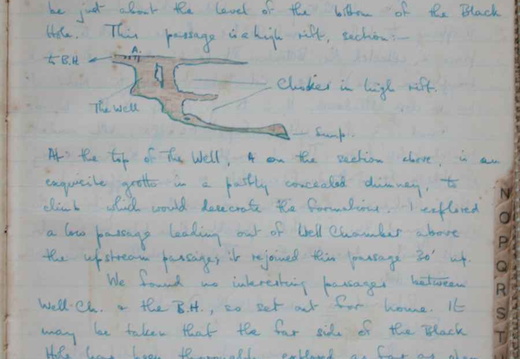 be just about the level of the bottom of the Black
Hole. This passage is a high rift, section:—
A.
to B.H.
Chokes in high rift.
The Well
Sump.
At the top of The Well, A on the section above, is an
exquisite grotto in a partly concealed chimney, to
climb which would desecrate the formations. I explored
a low passage leading out of Well Chamber above
the upstream passage; it rejoined this passage 30' up.
We found no interesting passages between
Well Ch. & the B.H., so set out for home. It
may be taken that the far side of the Black
Hole has been thoroughly explored as far as
N
O
P
Q
R
S
T